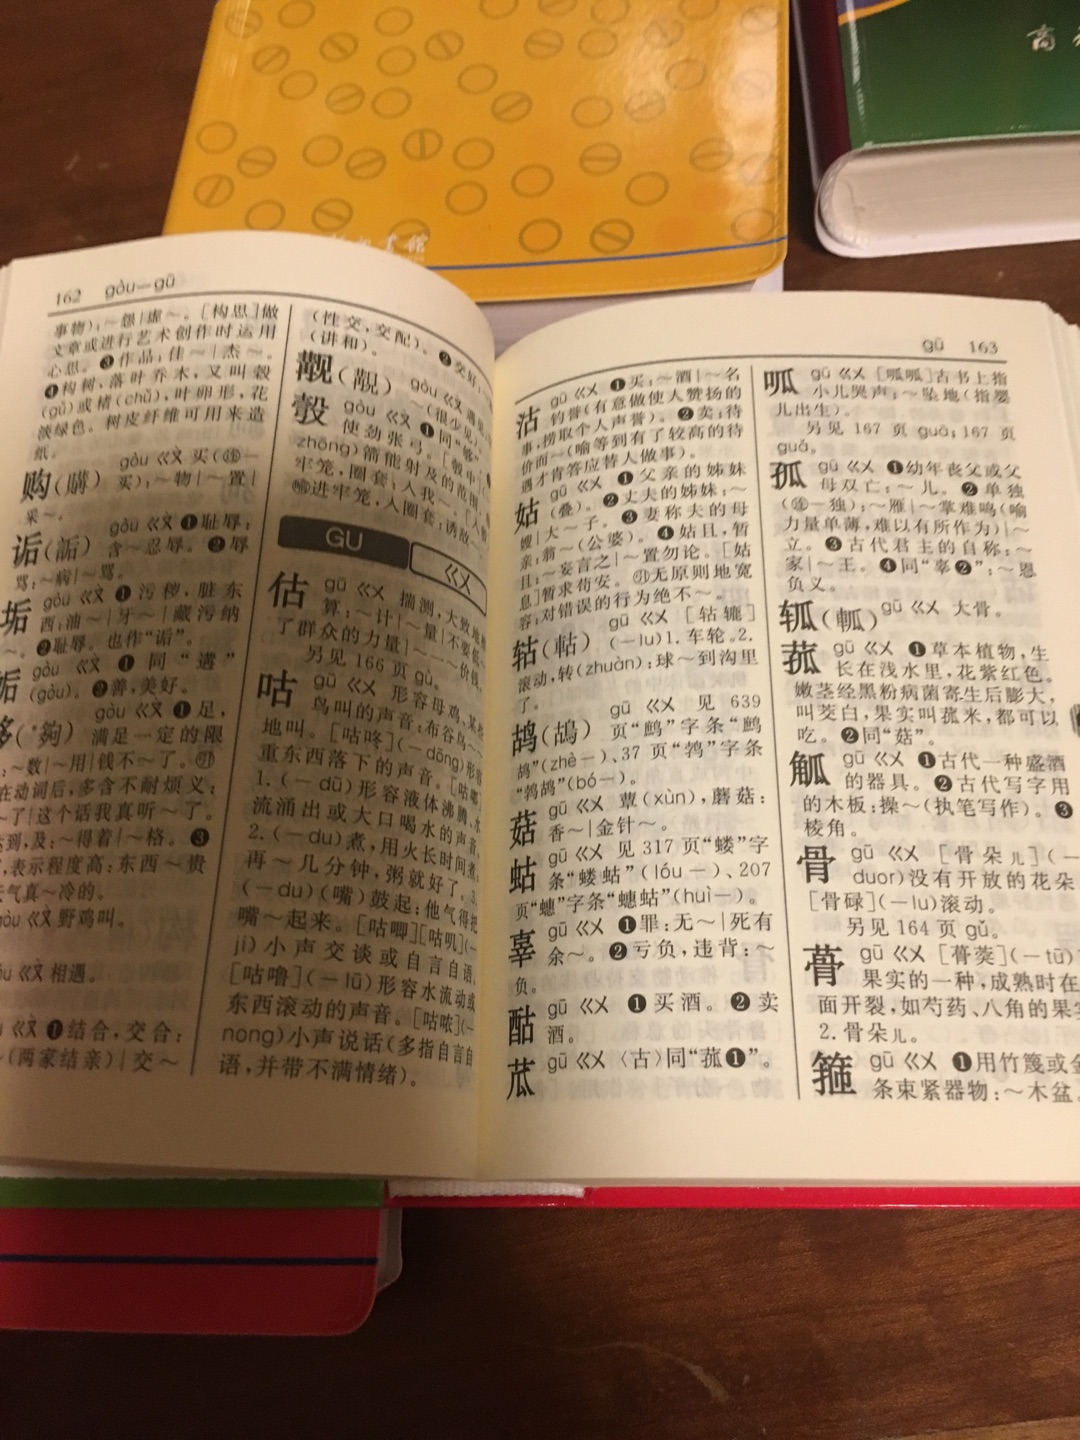 商
书馆
162 gòu—gū
事物):~怨|虚~。[构思]做
文章或进行艺术创作时运用
心思。❸作品:佳~|杰~。
❹构树,落叶乔木,又叫榖
(gǔ)或楮(chǔ),叶卵形,花
淡绿色。树皮纤维可用来造
纸。
购(購) gòu ㄍㄡˋ 买(㊥—
买):~物|~置|
采~。
诟(詬) gòu ㄍㄡˋ ❶耻辱:
含~忍辱。❷辱
骂:~病|~骂。
垢 gòu ㄍㄡˋ ❶污秽,脏东
西:油~|牙~|藏污纳
~。❷耻辱。也作“诟”。
姤 gòu ㄍㄡˋ ❶同“遘”
(gòu)。❷善,美好。
够(*夠) gòu ㄍㄡˋ ❶足,
满足一定的限
:~数|~用|钱不~了。㊁
在动词后,多含不耐烦义:
~了|这个话我真听~了。
达到,及:~得着|~格。❸
,表示程度高:东西~贵
天气真~冷的。
gòu ㄍㄡˋ野鸡叫。
gòu ㄍㄡˋ 相遇。
gòu ㄍㄡˋ ❶结合,交合:
~(两家结亲)|交~
(性交,交配)。❷交好:
(讲和)。
觏(覯) gòu ㄍㄡˋ 遇见:
~(很少见)
彀 gòu ㄍㄡˋ ❶同“够”。❷
使劲张弓。[彀中]
zhōng)箭能射及的范围,
牢笼,圈套:入我~。[入彀]
进牢笼,入圈套:诱敌~。
GU ㄍㄨ
估 gū ㄍㄨ 揣测,大致地
算:~计|~量|不要低~
了群众的力量|~一~价钱。
另见 166 页 gù。
咕 gū ㄍㄨ 形容母鸡、某些
鸟叫的声音:布谷鸟~~
地叫。[咕咚](—dōng)形容
重东西落下的声音。[咕嘟]
1.(—dū)形容液体沸腾、水
流涌出或大口喝水的声音。
2.(—du)煮,用火长时间煮:
再~几分钟,粥就好了。3.
(—du)(嘴)鼓起:他气得把
嘴~起来。[咕唧][咕叽](—
ji)小声交谈或自言自语。
[咕噜](—lū)形容水流动或
东西滚动的声音。[咕哝](—
nong)小声说话(多指自言自
语,并带不满情绪)。
gū 163
沽 gū ㄍㄨ ❶买:~酒|~名
钓誉(有意做使人赞扬的
事,捞取个人声誉)。❷卖:待
价而~(喻等到有了较高的待
遇才肯答应替人做事)。
姑 gū ㄍㄨ ❶父亲的姊妹
(叠)。❷丈夫的姊妹:~
嫂|大~子。❸妻称夫的母
亲:翁~(公婆)。❹姑且,暂
且:~妄言之|~置勿论。[姑
息]暂求苟安。㊁无原则地宽
容:对错误的行为绝不~。
轱(軲) gū ㄍㄨ [轱辘]
(—lu)1.车轮。2.
滚动,转(zhuàn):球~到沟里
了。
鸪(鴣) gū ㄍㄨ 见 639
页“鹧”字条“鹧
鸪”(zhè—)、37 页“鹁”字条
“鹁鸪”(bó—)。
菇 gū ㄍㄨ 蕈(xùn),蘑菇:
香~|金针~。
蛄 gū ㄍㄨ 见 317 页“蝼”字
条“蝼蛄”(lóu—)、207
页“蟪”字条“蟪蛄”(huì—)。
辜 gū ㄍㄨ ❶罪:无~|死有
余~。❷亏负,违背:~
负。
酤 gū ㄍㄨ ❶买酒。❷卖
酒。
苽 gū ㄍㄨ 〈古〉同“菰❶”。
呱 gū ㄍㄨ [呱呱]古书上指
小儿哭声:~坠地(指婴
儿出生)。
另见 167 页 guā;167 页
guǎ。
孤 gū ㄍㄨ ❶幼年丧父或父
母双亡:~儿。❷单独
(㊥—独):~雁|~掌难鸣(喻
力量单薄,难以有所作为)|~
立。❸古代君主的自称:~
家|~王。❹同“辜❷”:~恩
负义。
轱(軱) gū ㄍㄨ 大骨。
菰 gū ㄍㄨ ❶草本植物,生
长在浅水里,花紫红色。
嫩茎经黑粉病菌寄生后膨大,
叫茭白,果实叫菰米,都可以
吃。❷同“菇”。
觚 gū ㄍㄨ ❶古代一种盛酒
的器具。❷古代写字用
的木板:操~(执笔写作)。❸
棱角。
骨 gū ㄍㄨ [骨朵儿](—
duor)没有开放的花朵
[骨碌](—lu)滚动。
另见 164 页 gǔ。
蓇 gū ㄍㄨ [蓇葖](—tū)
果实的一种,成熟时在
面开裂,如芍药、八角的果实
2.骨朵儿。
箍 gū ㄍㄨ ❶用竹篾或金
条束紧器物:~木盆。